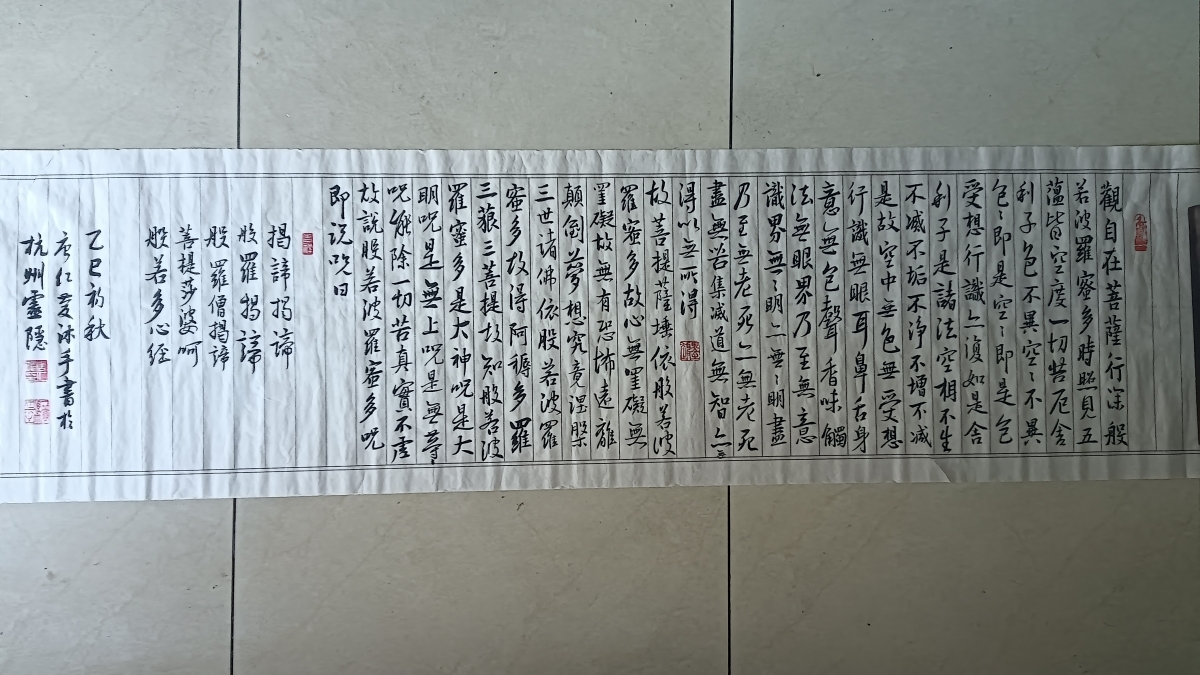 觀自在菩薩行深般
若波羅蜜多時照見五
蘊皆空度一切苦厄舍
利子色不異空〻不異
色〻即是空〻即是色
受想行識亠復如是舍
利子是諸法空相不生
不滅不垢不淨不增不减
是故空中無色無受想
行識無眼耳鼻舌身
意無色聲香味觸
法無眼界乃至無意
識界無〻明亦無〻明盡
乃至無老死亦無老死
盡無苦集滅道無智亦無
得以無所得
故菩提薩埵依般若波
羅蜜多故心無罣礙無
罣礙故無有恐怖遠離
顛倒夢想究竟涅槃
三世諸佛依般若波羅
蜜多故得阿耨多羅
三藐三菩提故知般若波
羅蜜多是大神呪是大
明呪是無上呪是無等〻
呪能除一切苦真實不虛
故說般若波羅蜜多呪
即説呪曰
揭諦揭諦
般羅揭諦
般羅僧揭諦
菩提莎婆呵
般若多心經
乙巳初秋
沐手書於
杭州靈隱